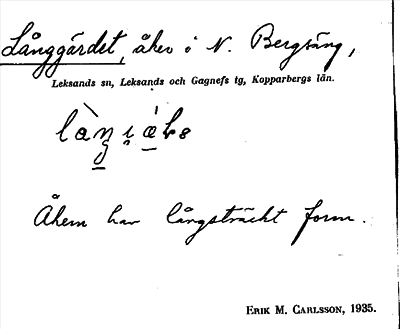 Långgärdet, åker i N. Bergsäng,
Leksands sn, Leksands och Gagnefs tg, Kopparbergs län.
Åkern har långsträckt form.
ERIK M. CARLSSON, 1935.